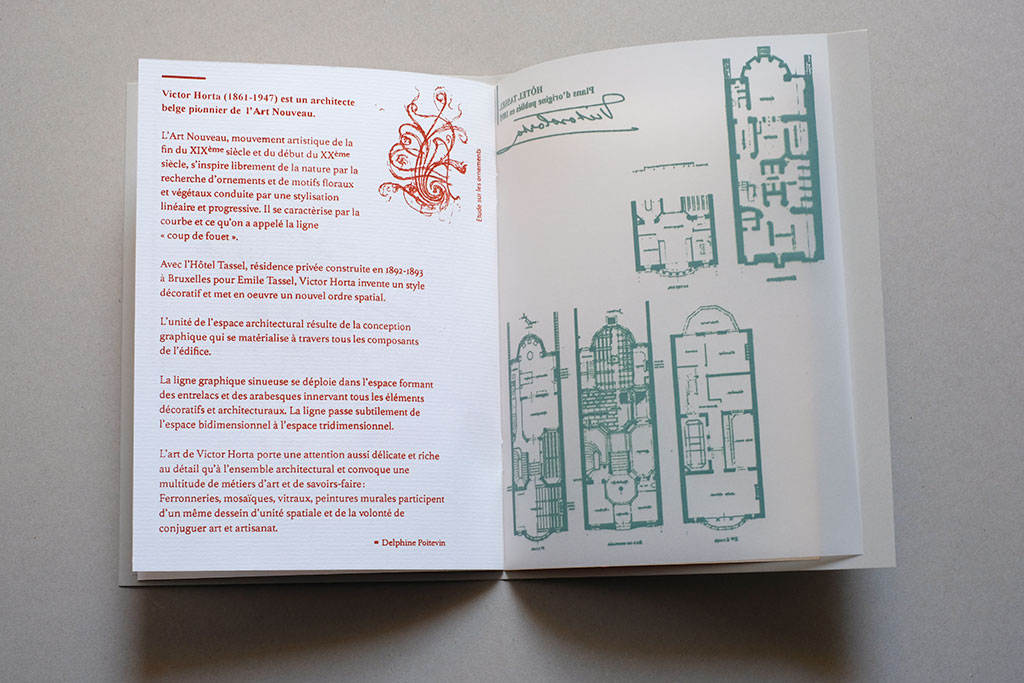 Victor Horta (1861-1947) est un architecte
belge pionnier de l'Art Nouveau.
L'Art Nouveau, mouvement artistique de la
fin du XIXème siècle et du début du XXème
siècle, s'inspire librement de la nature par la
recherche d'ornements et de motifs floraux
et végétaux conduite par une stylisation
linéaire et progressive. Il se caractèrise par la
courbe et ce qu'on a appelé la ligne
« coup de fouet ».
Avec l'Hôtel Tassel, résidence privée construite en 1892-1893
à Bruxelles pour Emile Tassel, Victor Horta invente un style
décoratif et met en oeuvre un nouvel ordre spatial.
L'unité de l'espace architectural résulte de la conception
graphique qui se matérialise à travers tous les composants
de l'édifice.
La ligne graphique sinueuse se déploie dans l'espace formant
des entrelacs et des arabesques innervant tous les éléments
décoratifs et architecturaux. La ligne passe subtilement de
l'espace bidimensionnel à l'espace tridimensionnel.
L'art de Victor Horta porte une attention aussi délicate et riche
au détail qu'à l'ensemble architectural et convoque une
multitude de métiers d'art et de savoirs-faire :
Ferronneries, mosaïques, vitraux, peintures murales participent
d'un même dessein d'unité spatiale et de la volonté de
conjuguer art et artisanat.
= Delphine Poitevin
Etude sur les ornements
HÔTEL TASSEL
Plans d'origine publiés en
Victor Horta